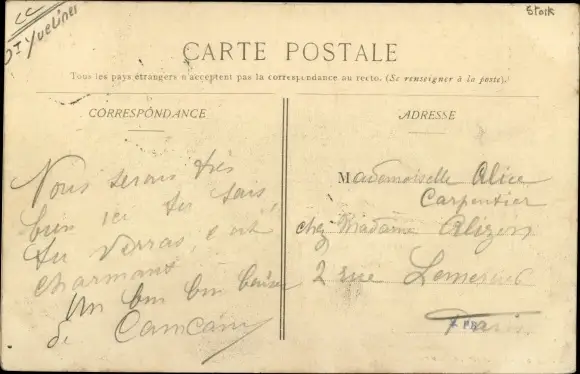 DT Yvelines
Stock
CARTE POSTALE
Tous les pays étrangers n'acceptent pas la correspondance au recto. (Se renseigner à la poste).
CORRESPONDANCE
Nous serons très
bien ici tu sais,
tu verras, c'est
charmant.
Un bon bon baiser
de
ADRESSE
Mademoiselle Alice
Carpentier
chez Madame Alizon
2 rue
Paris